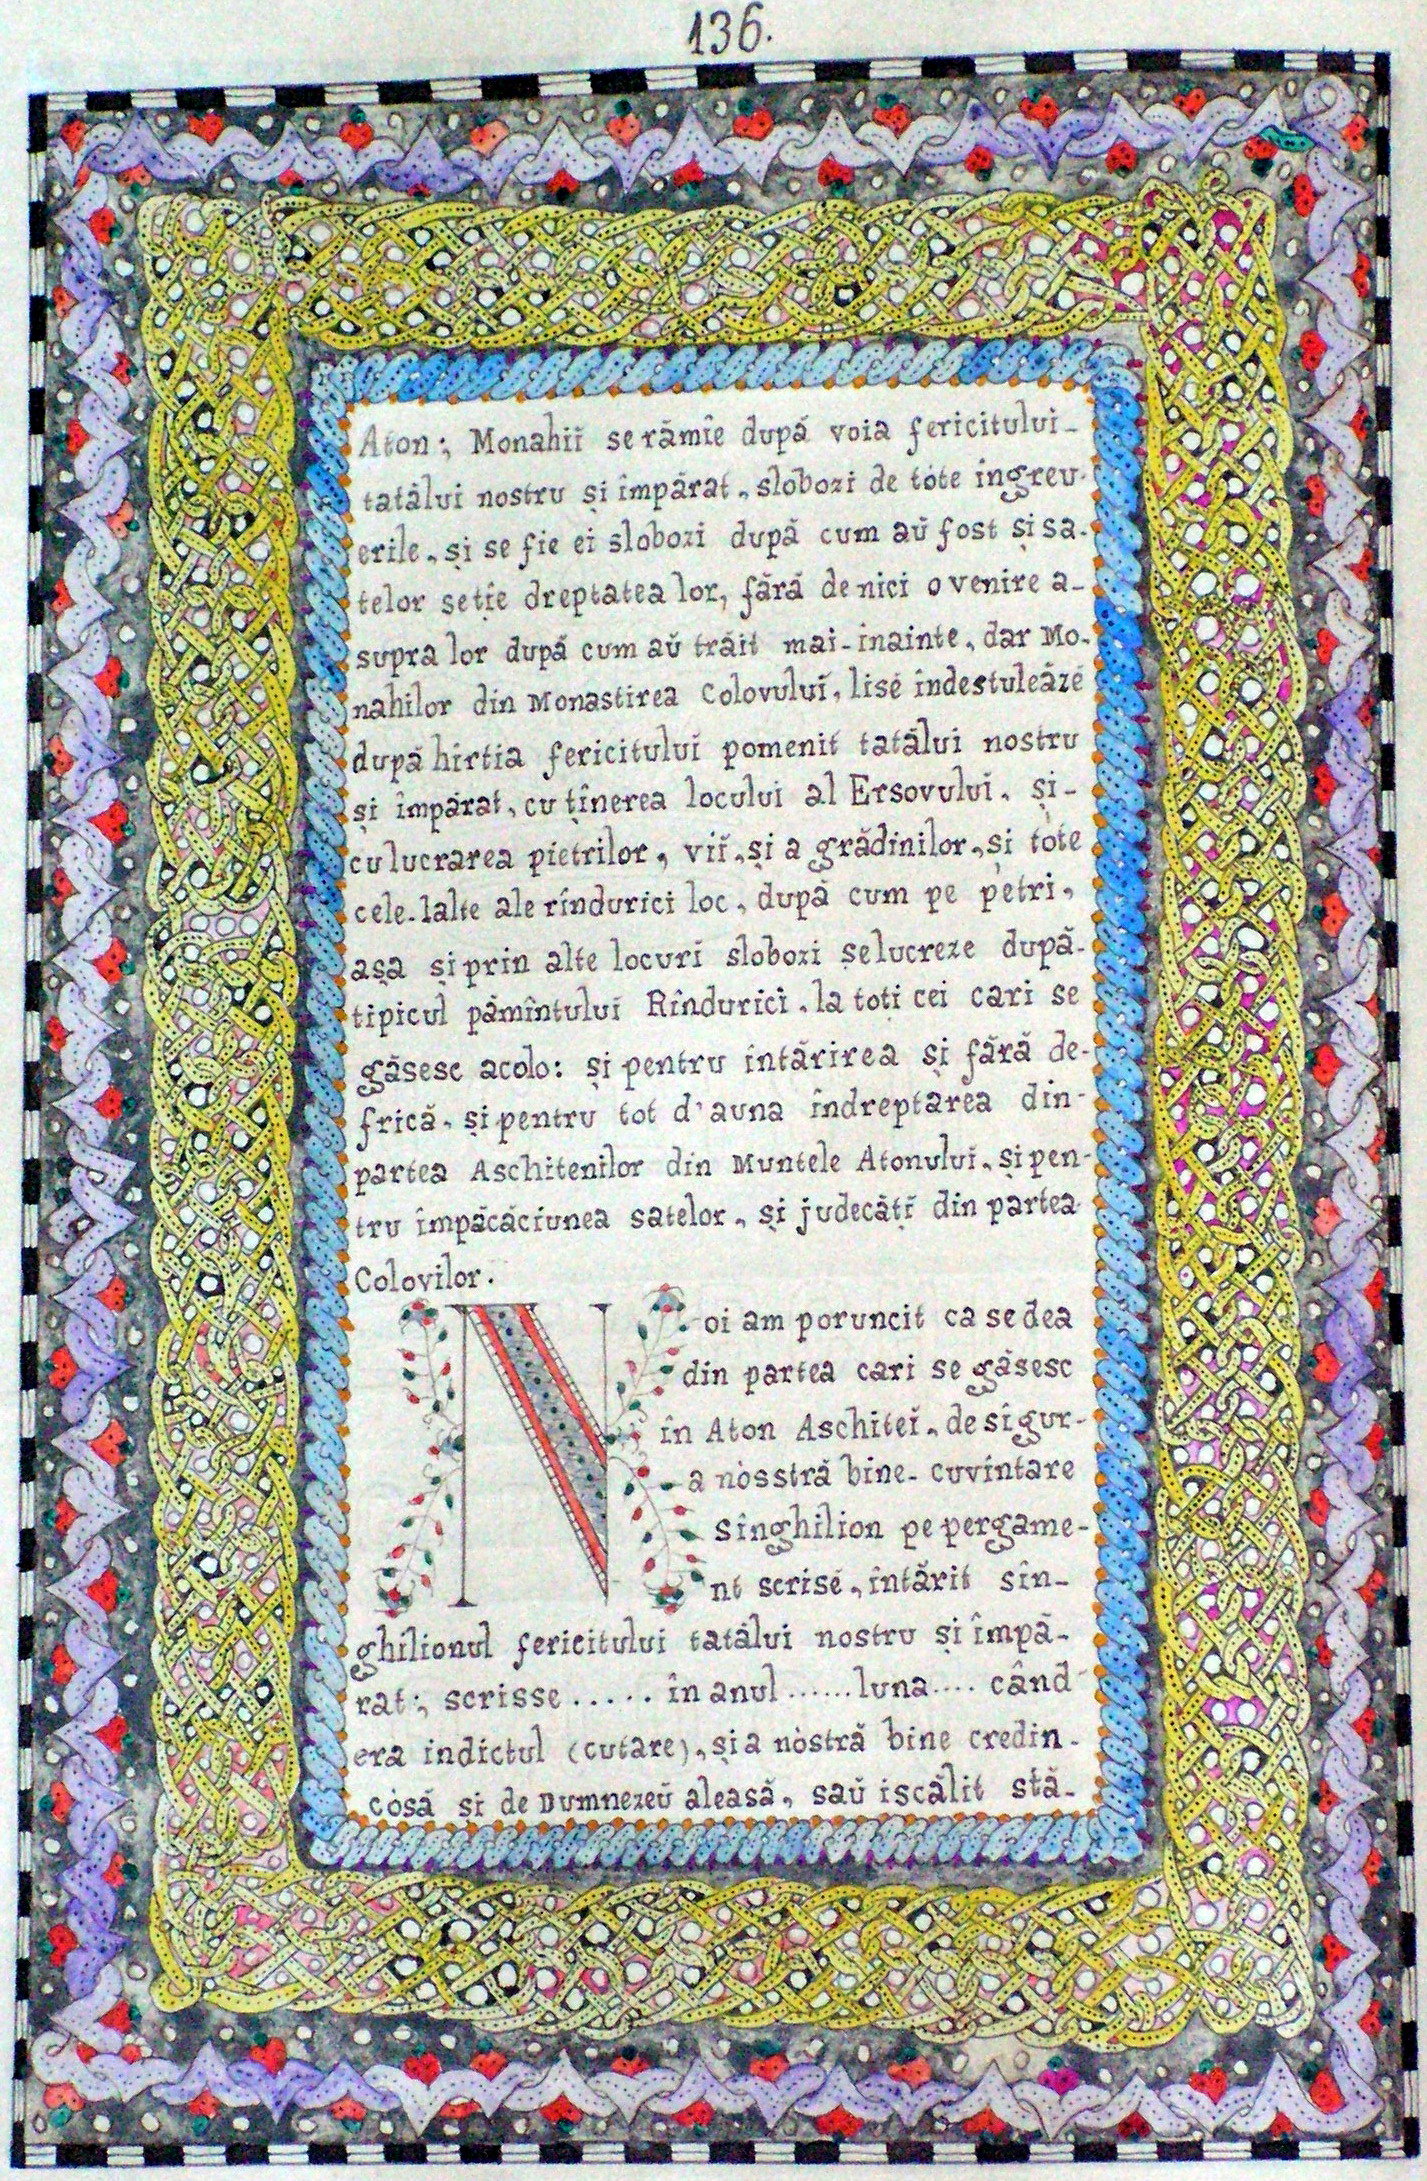 136.
Aton; Monahiĭ se rămîe după voia fericitului-
tatălui nostru și împărat, slobozi de tóte îngreu-
erile, și se fie ei slobozi după cum aŭ fost și sa-
telor se ție dreptatea lor, fără de nici o venire a-
supra lor după cum aŭ trăit mai-înainte, dar Mo-
nahilor din Monastirea Colovuluĭ, lisé îndestuleăzé
după hîrtia fericituluĭ pomenit tatălui nostru
și împărat, cu ținerea locului al Ersovuluĭ, și-
cu lucrarea pietrilor, viĭ, și a grădinilor, și tóte
cele-lalte ale rîndurici loc, după cum pe petri,
așa și prin alte locurĭ slobozi se lucreze după-
tipicul pămîntuluĭ Rîndurici, la toți cei cari se
găsesc acolo: și pentru întărirea și fără de-
frică, și pentru tot d'auna îndreptarea din-
partea Aschitenilor din Muntele Atonuluĭ, și pen-
tru împăcăciunea satelor, și judecățĭ din partea
Colovilor.
Noi am poruncit ca se dea
din partea cari se găsesc
în Aton Aschiteĭ, de sigur-
a nósstră bine-cuvîntare
sînghilion pe pergame-
nt scrisé, întărit sîn-
ghilionul fericitului tatălui nostru și împă-
rat; scrisse ..... în anul ...... luna .... când
era indictul (cutare), și a nóstră bine credin-
cósă si de Dumnezeŭ aleasă, saŭ iscălit stă-